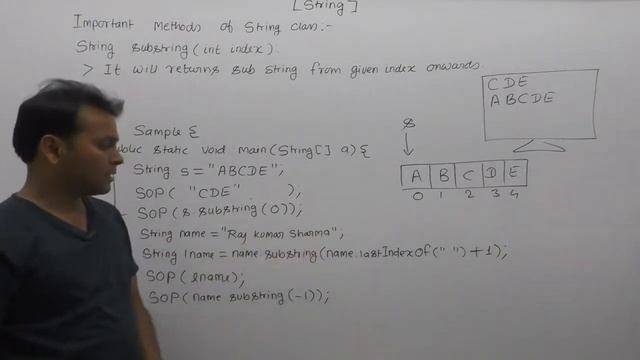 [String]
Important Methods of String class:-
String substring(int index).
> It will returns sub string from given index onwards.
CDE
ABCDE
Sample {
public static void main(String[] a){
String s="ABCDE";
SOP( "CDE" );
SOP(s.substring(0));
String name="Raj Kumar Sharma";
String lname=name.substring(name.lastIndexOf(" ")+1);
SOP(lname);
SOP(name substring(-1));
s
A B C D E
0 1 2 3 4